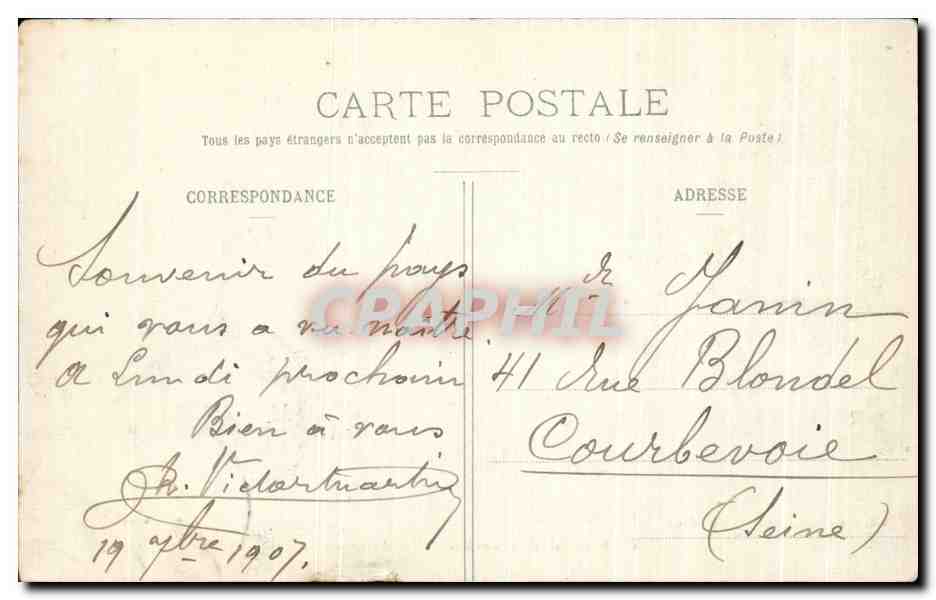 CARTE POSTALE
Tous les pays étrangers n'acceptent pas la correspondance au recto (Se renseigner à la Poste)
CORRESPONDANCE
Souvenir du pays
qui vous a vu naître
A Lundi prochain
Bien à vous
19 1907.
ADRESSE
Mr Janin
41 Rue Blondel
Courbevoie
(Seine)
CPAPHIL